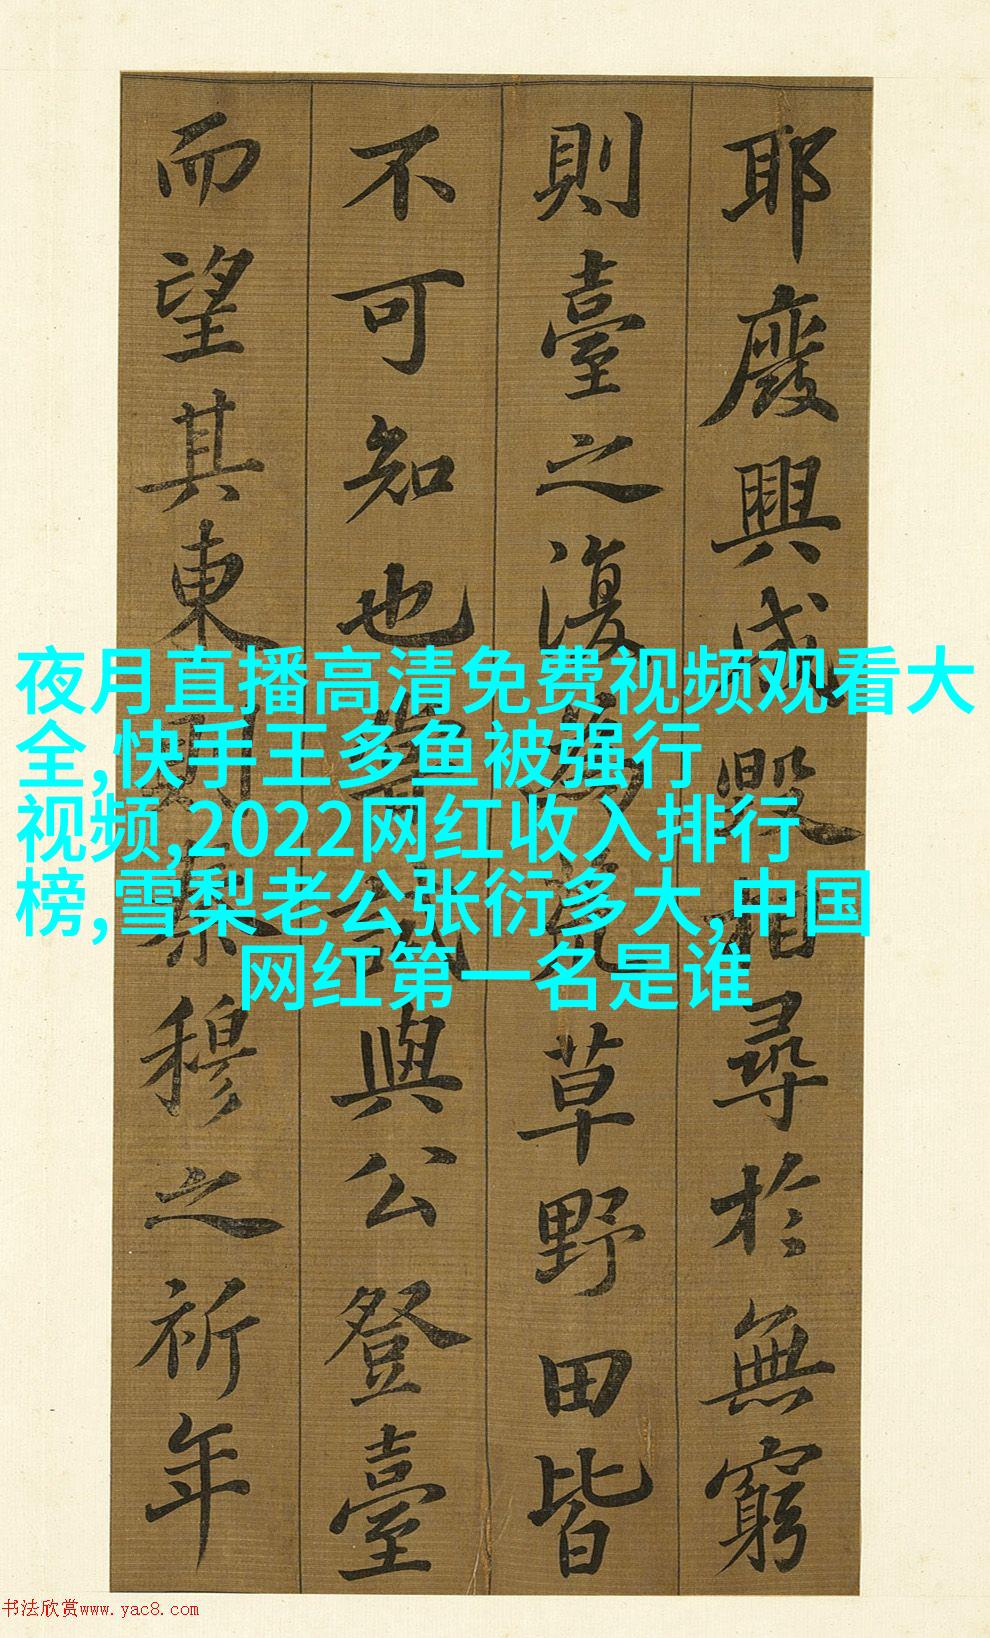 耶廢興成毀相尋於無窮
則臺之復為荒草野田皆
不可知也嘗試與公登臺
而望其東則秦穆之祈年
夜月直播高清免费视频观看大
全,快手王多鱼被强行
视频,2022网红收入排行
榜,雪梨老公张衍多大,中国
网红第一名是谁
书法欣赏www.yac8.com